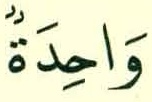 وَاحِدَةٌ